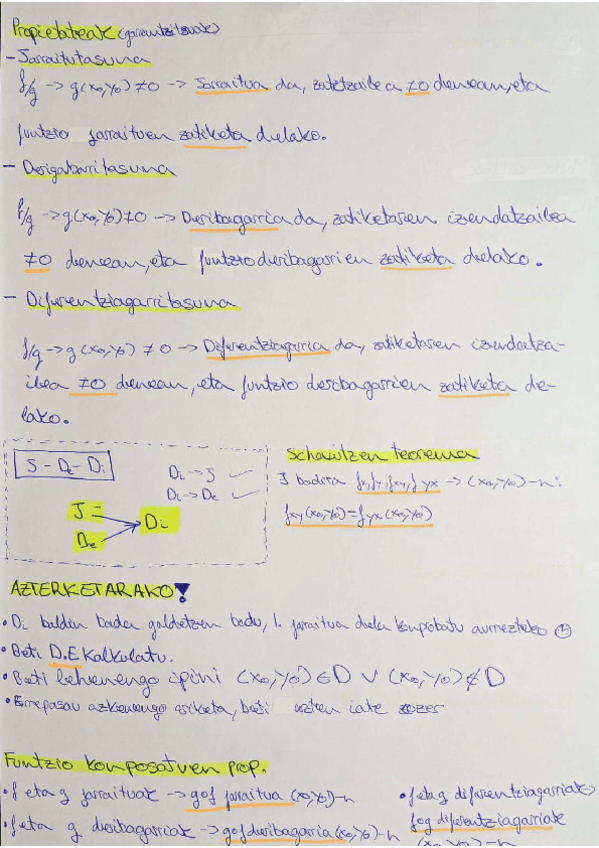 Propietateak (garrantzitsuak)
- Jarraitutasuna
f/g -> g(x₀,y₀) ≠0 -> Jarraitua da, zatitzailea ≠0 denean, eta
funtzio jarraituen zatiketa delako.
- Deribagarritasuna
f/g -> g(x₀,y₀) ≠0 -> Deribagarria da, zatiketaren izendatzailea
≠0 denean, eta funtzio deribagarrien zatiketa delako.
- Diferentziagarritasuna
f/g -> g(x₀,y₀) ≠ 0 -> Diferentziagarria da, zatiketaren izendatza-
ilea ≠0 denean, eta funtzio deribagarrien zatiketa de-
lako.
J - De - Di
Di -> J ✓
Di -> De ✓
J
De
Di
Schwartzen teorema
∃ badira fx, fy, fxy, fyx -> (x₀,y₀)-n:
fxy(x₀,y₀)=fyx(x₀,y₀)
AZTERKETARAKO!
• Di balden bada galdetzen badu, 1. jarraitua dela konprobatu aurrezteko
• Beti D.E kalkulatu.
• Beti lehenengo ipini (x₀,y₀) ∈ D ∨ (x₀,y₀) ∉ D
• Errepasau azkenengo ariketa, beti azten
Funtzio konposatuen prop.
• f eta g jarraituak -> gof jarraitua (x₀,y₀)-n
• f eta g deribagarriak -> gof deribagarria (x₀,y₀)-n
• f eta g diferentziagarriak ->
fog diferentziagarriak
(x₀,y₀)-n